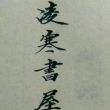 凌寒書屋